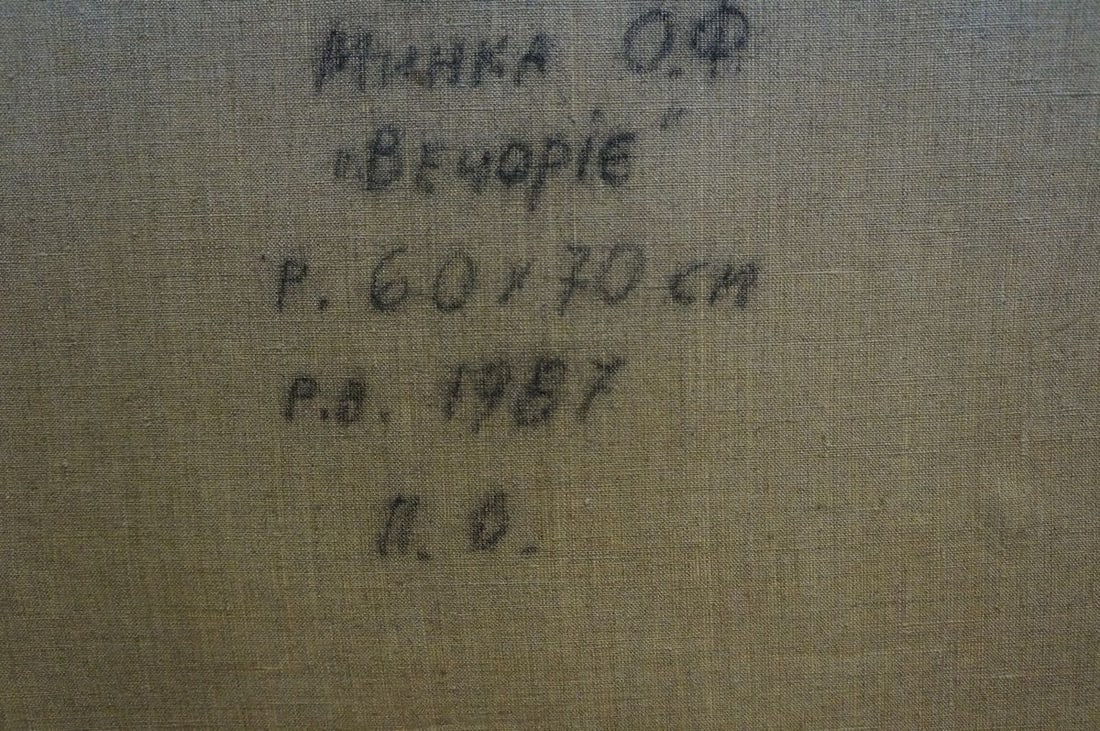 Минка О.Ф
"Вечоріє"
Р. 60 х 70 см
Р.В. 1987
П. О.